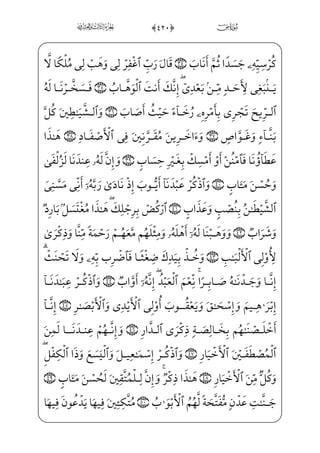 ﴿٤٢٠﴾
كُرْسِيِّهِۦ جَسَدًا ثُمَّ أَنَابَ ۝٣٤ قَالَ رَبِّ ٱغْفِرْ لِى وَهَبْ لِى مُلْكًا لَّا
يَنۢبَغِى لِأَحَدٍ مِّنۢ بَعْدِىٓ ۖ إِنَّكَ أَنتَ ٱلْوَهَّابُ ۝٣٥ فَسَخَّرْنَا لَهُ
ٱلرِّيحَ تَجْرِى بِأَمْرِهِۦ رُخَآءً حَيْثُ أَصَابَ ۝٣٦ وَٱلشَّيَـٰطِينَ كُلَّ
بَنَّآءٍ وَغَوَّاصٍ ۝٣٧ وَءَاخَرِينَ مُقَرَّنِينَ فِى ٱلْأَصْفَادِ ۝٣٨ هَـٰذَا
عَطَآؤُنَا فَٱمْنُنْ أَوْ أَمْسِكْ بِغَيْرِ حِسَابٍ ۝٣٩ وَإِنَّ لَهُۥ عِندَنَا لَزُلْفَىٰ
وَحُسْنَ مَـَٔابٍ ۝٤٠ وَٱذْكُرْ عَبْدَنَآ أَيُّوبَ إِذْ نَادَىٰ رَبَّهُۥٓ أَنِّى مَسَّنِىَ
ٱلشَّيْطَـٰنُ بِنُصْبٍ وَعَذَابٍ ۝٤١ ٱرْكُضْ بِرِجْلِكَ ۖ هَـٰذَا مُغْتَسَلٌۢ بَارِدٌ
وَشَرَابٌ ۝٤٢ وَوَهَبْنَا لَهُۥٓ أَهْلَهُۥ وَمِثْلَهُم مَّعَهُمْ رَحْمَةً مِّنَّا وَذِكْرَىٰ
لِأُو۟لِى ٱلْأَلْبَـٰبِ ۝٤٣ وَخُذْ بِيَدِكَ ضِغْثًا فَٱضْرِب بِّهِۦ وَلَا تَحْنَثْ ۗ
إِنَّا وَجَدْنَـٰهُ صَابِرًا ۚ نِّعْمَ ٱلْعَبْدُ ۖ إِنَّهُۥٓ أَوَّابٌ ۝٤٤ وَٱذْكُرْ عِبَـٰدَنَآ
إِبْرَٰهِيمَ وَإِسْحَـٰقَ وَيَعْقُوبَ أُو۟لِى ٱلْأَيْدِى وَٱلْأَبْصَـٰرِ ۝٤٥ إِنَّآ
أَخْلَصْنَـٰهُم بِخَالِصَةٍ ذِكْرَى ٱلدَّارِ ۝٤٦ وَإِنَّهُمْ عِندَنَا لَمِنَ
ٱلْمُصْطَفَيْنَ ٱلْأَخْيَارِ ۝٤٧ وَٱذْكُرْ إِسْمَـٰعِيلَ وَٱلْيَسَعَ وَذَا ٱلْكِفْلِ ۖ
وَكُلٌّ مِّنَ ٱلْأَخْيَارِ ۝٤٨ هَـٰذَا ذِكْرٌ ۚ وَإِنَّ لِلْمُتَّقِينَ لَحُسْنَ مَـَٔابٍ ۝٤٩
جَنَّـٰتِ عَدْنٍ مُّفَتَّحَةً لَّهُمُ ٱلْأَبْوَٰبُ ۝٥٠ مُتَّكِـِٔينَ فِيهَا يَدْعُونَ فِيهَا